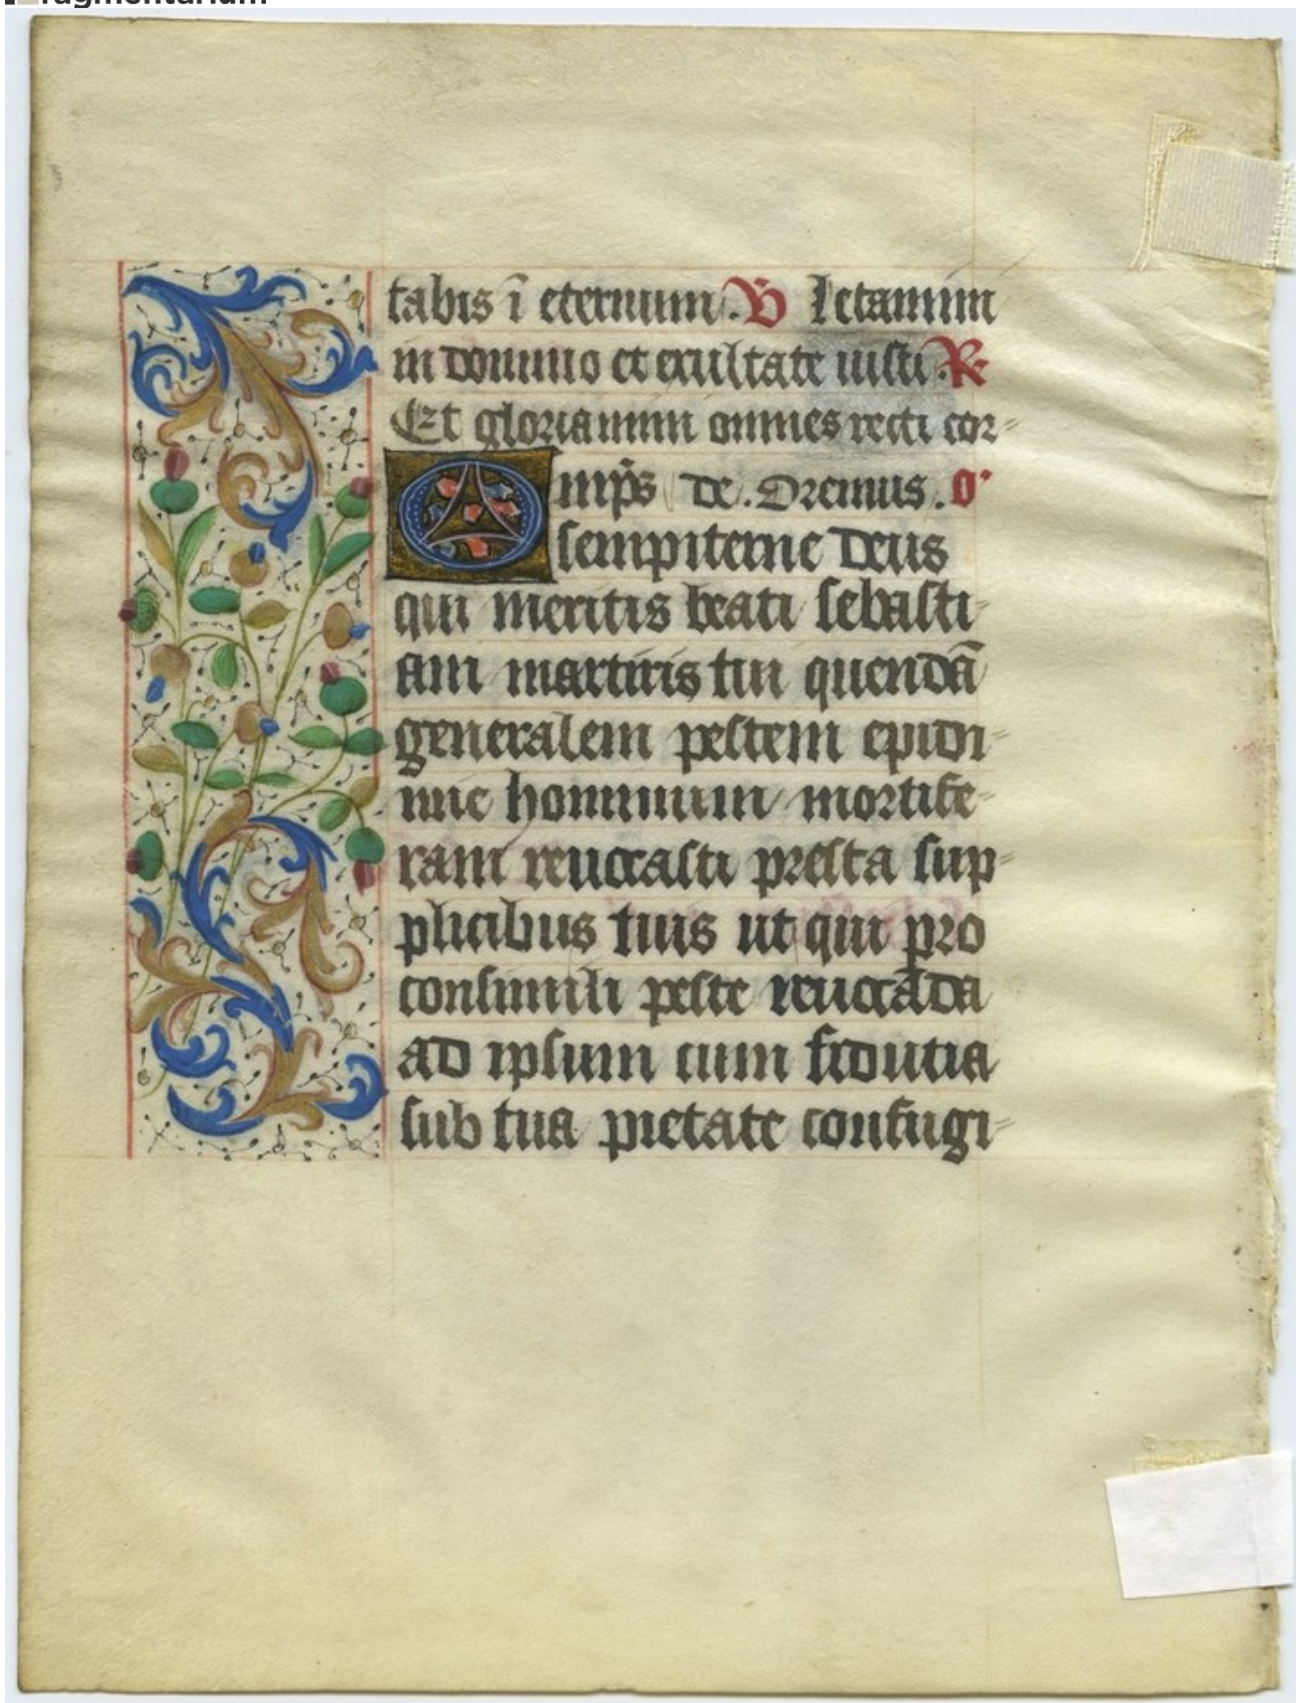 ragmentarium
tabis ī eternum. V̄ Letamini
in domino et exultate iusti R
Et gloriamini omnes recti cor=
Omp̄s de. Oremus. o
sempiterne deus
qui meritis beati sebasti-
ani martiris tui quendā
generalem pestem epidi=
mie hominum mortife-
ram reuocasti presta sup=
plicibus tuis ut qui pro
consimili peste reuocāda
ad ipsum cum fidutia
sub tua pietate confugi=